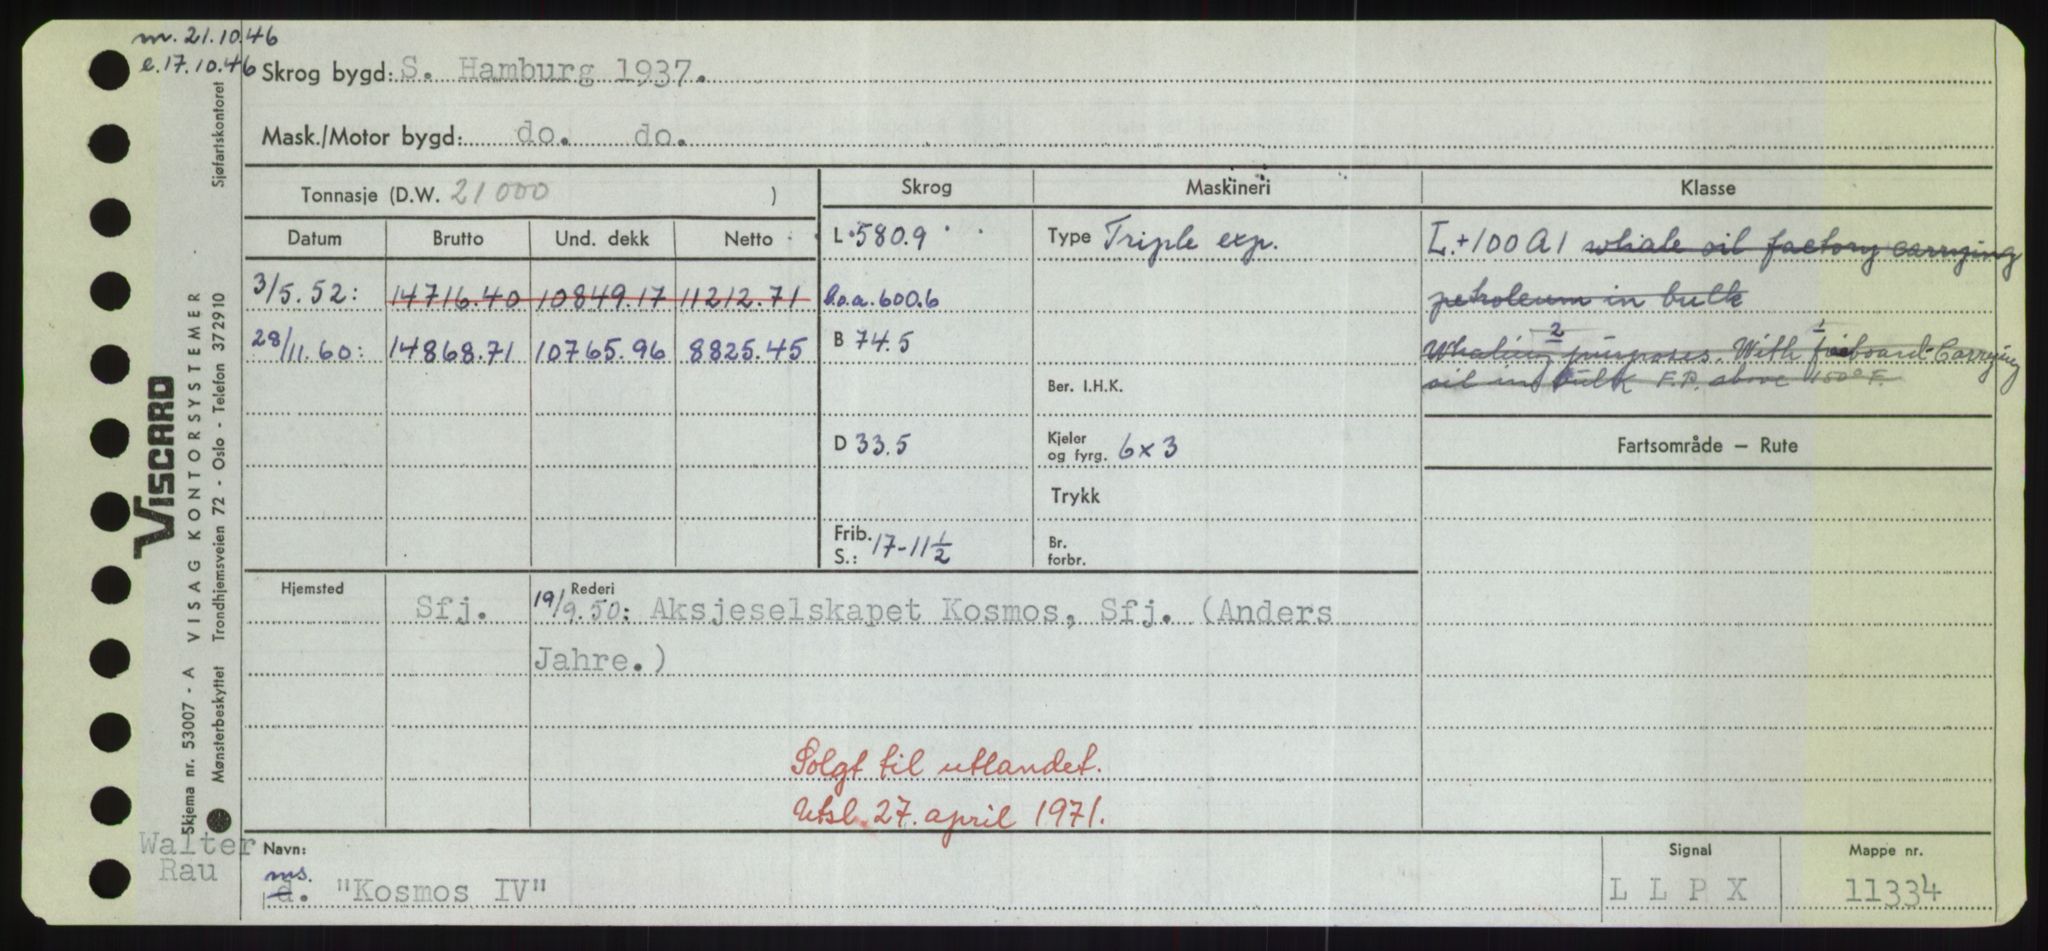 m. 21.10.46
e. 17.10.46
Skrog bygd: S. Hamburg 1937.
Mask./Motor bygd: do. do.
Tonnasje (D.W. 21000 )
Skrog
Maskineri
Klasse
Datum Brutto Und. dekk Netto
L 580.9
Type Triple exp.
L.+100A1 whale oil factory carrying
3/5.52: 14716.40 10849.17 11212.71
l.o.a. 600.6
petroleum in bulk
28/11.60: 14868.71 10765.96 8825.45
B 74.5
2 1
Whaling purposes. With freeboard. Carrying
oil in bulk F.P. above 150° F.
Ber. I.H.K.
D 33.5
Kjeler
og fyrg. 6x3
Fartsområde – Rute
Trykk
Frib.
S.: 17-11 1/2
Br.
forbr.
Hjemsted
Rederi
Sfj. 19/9.50: Aksjeselskapet Kosmos, Sfj. (Anders
Jahre.)
Solgt til utlandet.
Utsl. 27. april 1971.
Walter
Rau
Navn:
ms.
d. "Kosmos IV"
Signal
L L P X
Mappe nr.
11334
VISCARD
Skjema nr. 53007 - A VISAG KONTORSYSTEMER
Mønsterbeskyttet Trondhjemsveien 72 - Oslo - Telefon 372910 Sjøfartskontoret